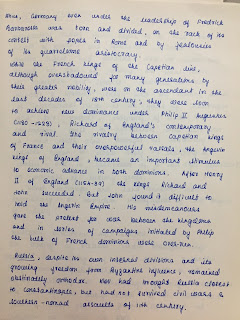 Thus, Germany even under the leadership of Fredrick
Barbarossa was torn and divided, on the rack of its
contests with popes in Rome and by jealousies
of its quarrelsome aristocracy.
While the French kings of the Capetian line,
although overshadowed for many generations by
their greater nobility, were on the ascendant in the
last decades of 12th century, they were soon
to achieve new dominance under Philip II Augustus
(1180-1223), Richard of England's contemporary
and rival. The rivalry between Capetian kings
of France and their overpowerful vassals, the Angevin
kings of England, became an important stimulus
to economic advance in both dominions. After Henry
II of England (1154-89) the kings Richard and
John succeeded. But John found it difficult to
hold the Angevin Empire. His misdemeanours
gave the pretext for war between the kingdoms
and in series of campaigns initiated by Philip
the bulk of French dominions were over-run.
Russia, despite its own internal divisions and its
growing freedom from Byzantine influence, remained
obstinately orthodox. Kiev had brought Russia closest
to Constantinople, but had not survived civil wars &
southern-nomad assaults of 11th century.